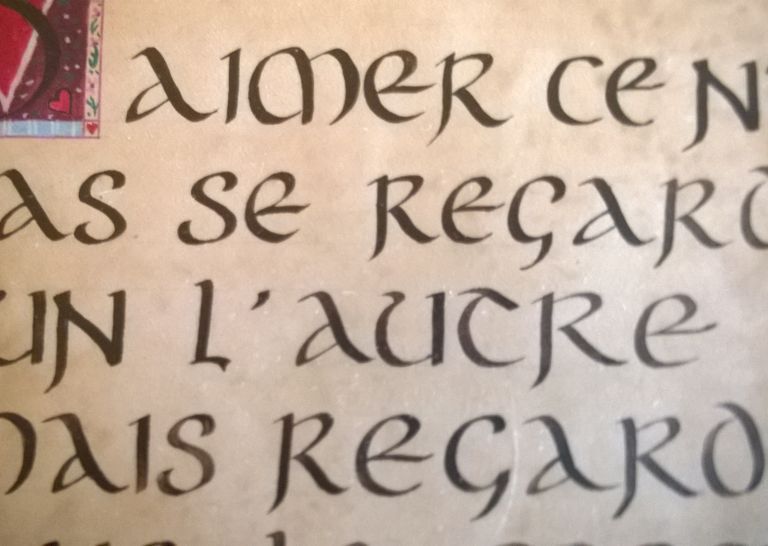 AIMER CE N'
AS SE REGARD
UN L'AUTRE
MAIS REGARD